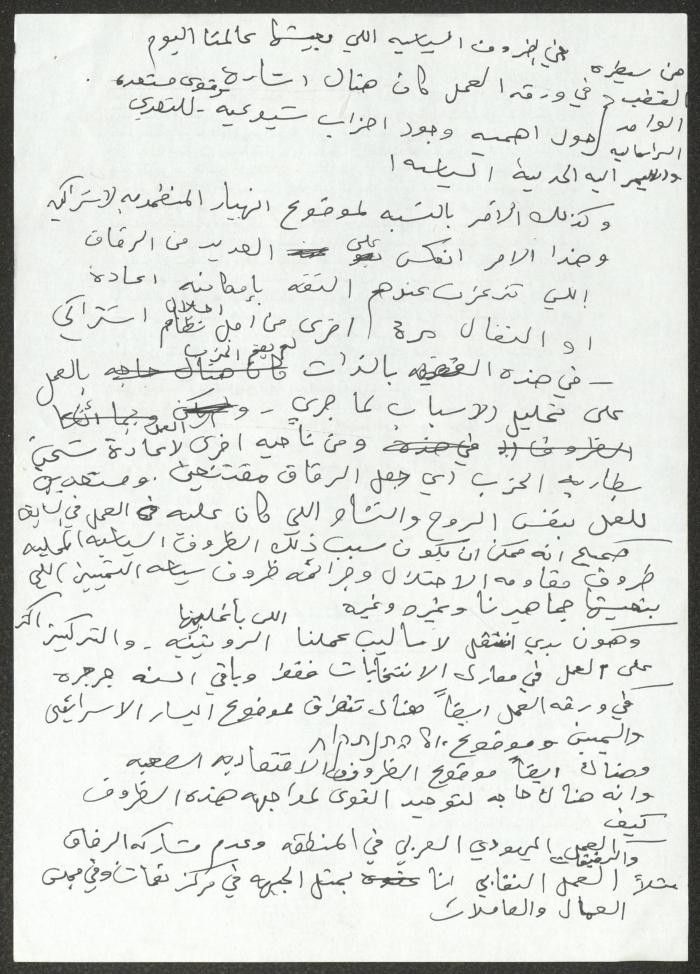 في الظروف السياسيه اللي بيعيشها عالمنا اليوم
من سيطرة القطب الواحد الراسمالية
في ورقة العمل كان هناك اشارة
حول اهمية وجود احزاب شيوعيه قوى مستعده للتحدي
السياسة
وكذلك الامر بالنسبه لموضوع انهيار المنظمه الاشتراكيه
وهذا الامر انعكس على العديد من الرفاق
اللي تزعزعت عندهم الثقه بإمكانية اعادة
او النضال مرة اخرى من اجل احلال نظام اشتراكي
- في هذه بالذات كان هناك حاجه لم يقم الحزب بالعمل
على تحليل الاسباب لما جرى - و
الظروف في هذه ومن ناحيه اخرى لاعادة شحن
بطارية الحزب اي جعل الرفاق مقتنعين ومستعدين
للعمل بنفس الروح والنشاط اللي كان عليه العمل في السابق
صحيح انه ممكن ان يكون سبب ذلك الظروف السياسيه المحليه
ظروف مقاومه الاحتلال وجرائمه ظروف سياسه التمييز اللي
بتعيشها جماهيرنا وغيره وغيره
وهون بدي انتقل لاساليب عملنا الروتينيه اللي بأغلبها - والتركيز اكثر
على العمل في معارك الانتخابات فقط وباقي السنه جرجره
في ورقه العمل ايضاً هناك تطرق لموضوع اليسار الاسرائيلي
واليمين وموضوع
وهناك ايضاً موضوع الظروف الاقتصاديه الصعبه
وانه هناك حاجه لتوحيد القوى لمواجهه هذه الظروف
كيف
العمل اليهودي العربي في المنطقه وعدم مشاركه الرفاق والرفيقات
مثلاً العمل النقابي انا عضوه بمثل الجبهه في مركز نقابات وفي مجلس
العمال والعاملات